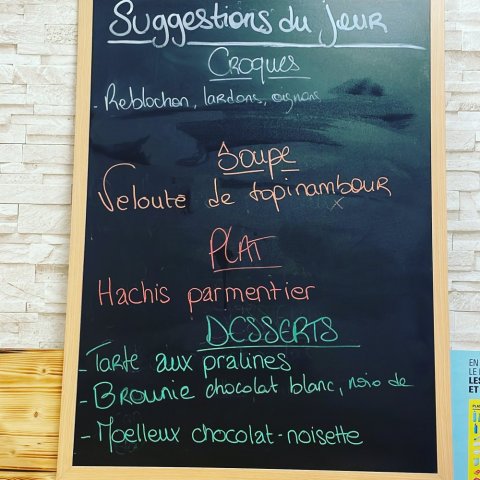 Suggestions du jour
CROQUES
- Reblochon, lardons, oignons
Soupe
Velouté de topinambour
PLAT
Hachis parmentier
DESSERTS
- Tarte aux pralines
- Brownie chocolat blanc, noix de
- Moelleux chocolat-noisette
EN
LES
ET